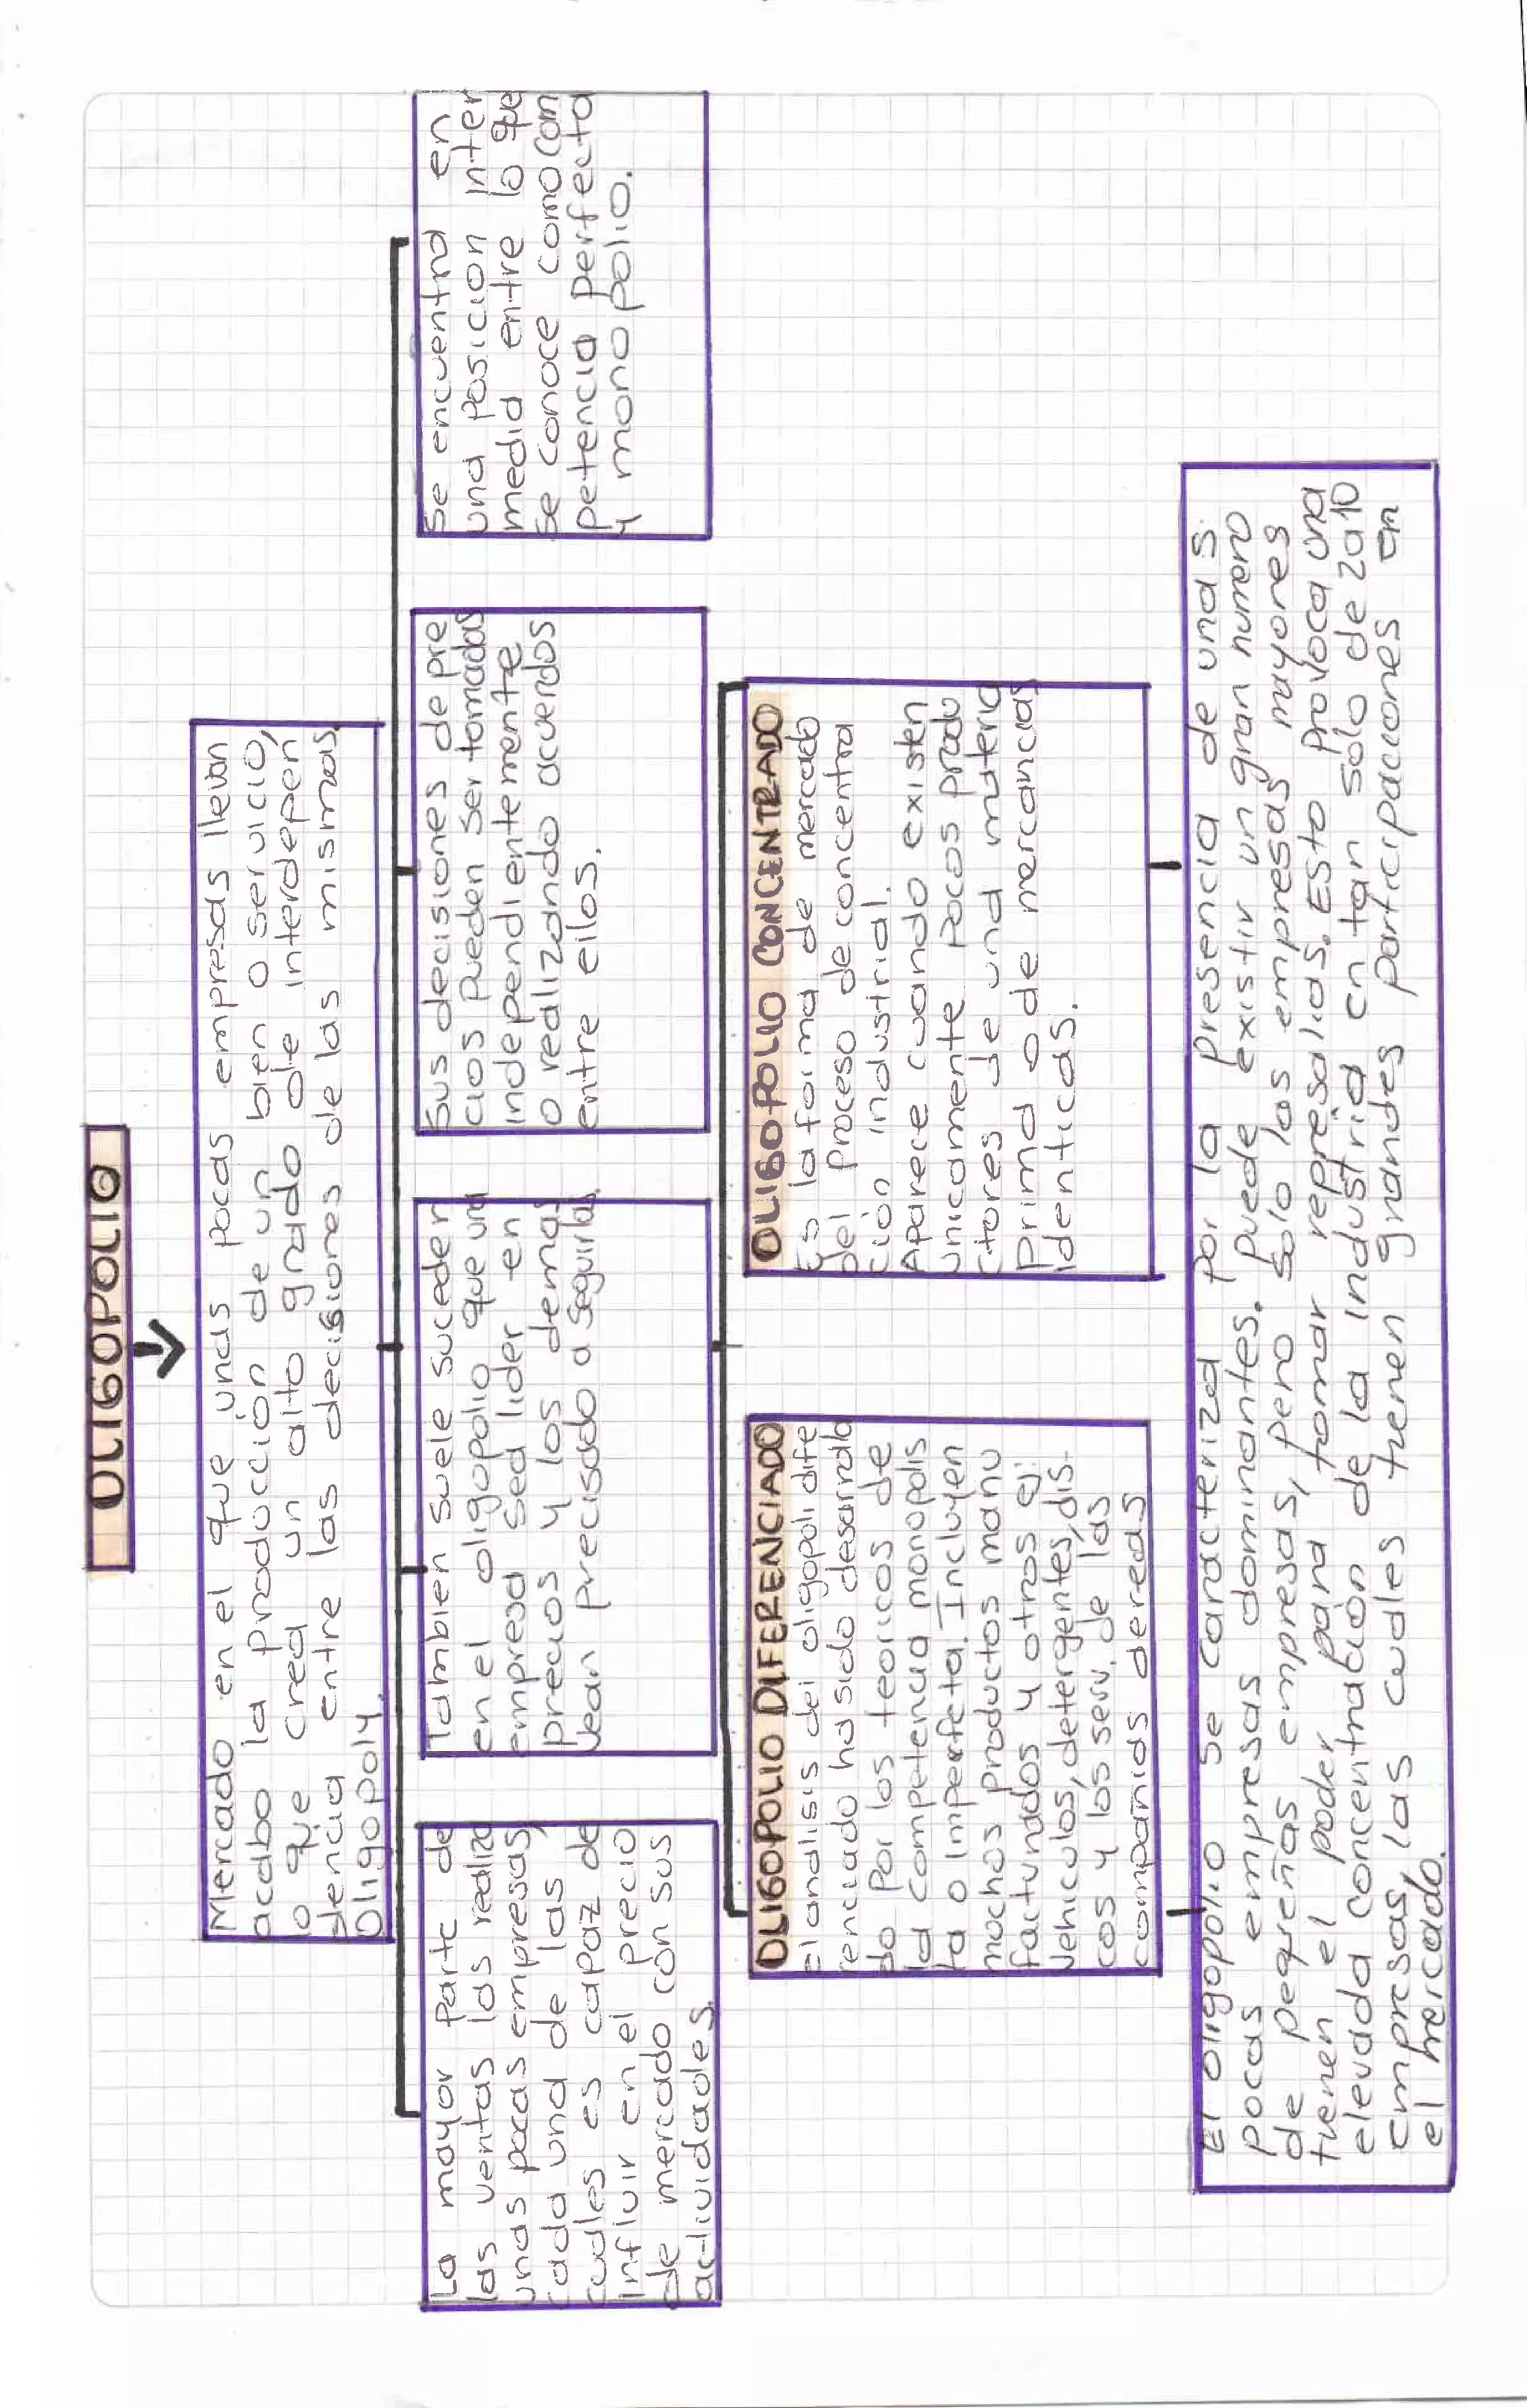 OLIGOPOLIO
Mercado en el que unas pocas empresas llevan
acabo la producción de un bien o servicio,
lo que crea un alto grado de interdepen
dencia entre las decisiones de las mismas.
Oligopoly.
La mayor parte de
las ventas las realiza
unas pocas empresas,
cada una de las
cuales es capaz de
influir en el precio
de mercado con sus
actividades.
Tambien suele suceder
en el oligopolio que una
empresa sea lider en
precios y los demas
vean precisado a seguirlas.
Sus decisiones de pre
cios pueden ser tomadas
independientemente
o realizando acuerdos
entre ellos.
Se encuentra en
una posicion inter
media entre lo que
se conoce como com
petencia perfecta
y monopolio.
OLIGOPOLIO DIFERENCIADO
El analisis del oligopoli dife
renciado ha sido desarrolla
do por los teoricos de
la competencia monopolis
ta o imperfecta. Incluyen
muchos productos manu
facturados y otros ej:
Vehiculos, detergentes, dis-
cos y los serv. de las
compañias dereas
OLIGOPOLIO CONCENTRADO
Es la forma de mercado
del proceso de concentra
ción industrial.
Aparece cuando existen
unicamente pocos produ
ctores de una materia
prima o de mercancias
identicas.
El oligopolio se caracteriza por la presencia de unas
pocas empresas dominantes. Puede existir un gran numero
de pequeñas empresas, pero solo las empresas mayores
tienen el poder para tomar represalias. Esto provoca una
elevada concentración de la industria en tan solo de 2 a 10
empresas, las cuales tienen grandes participaciones en
el mercado.